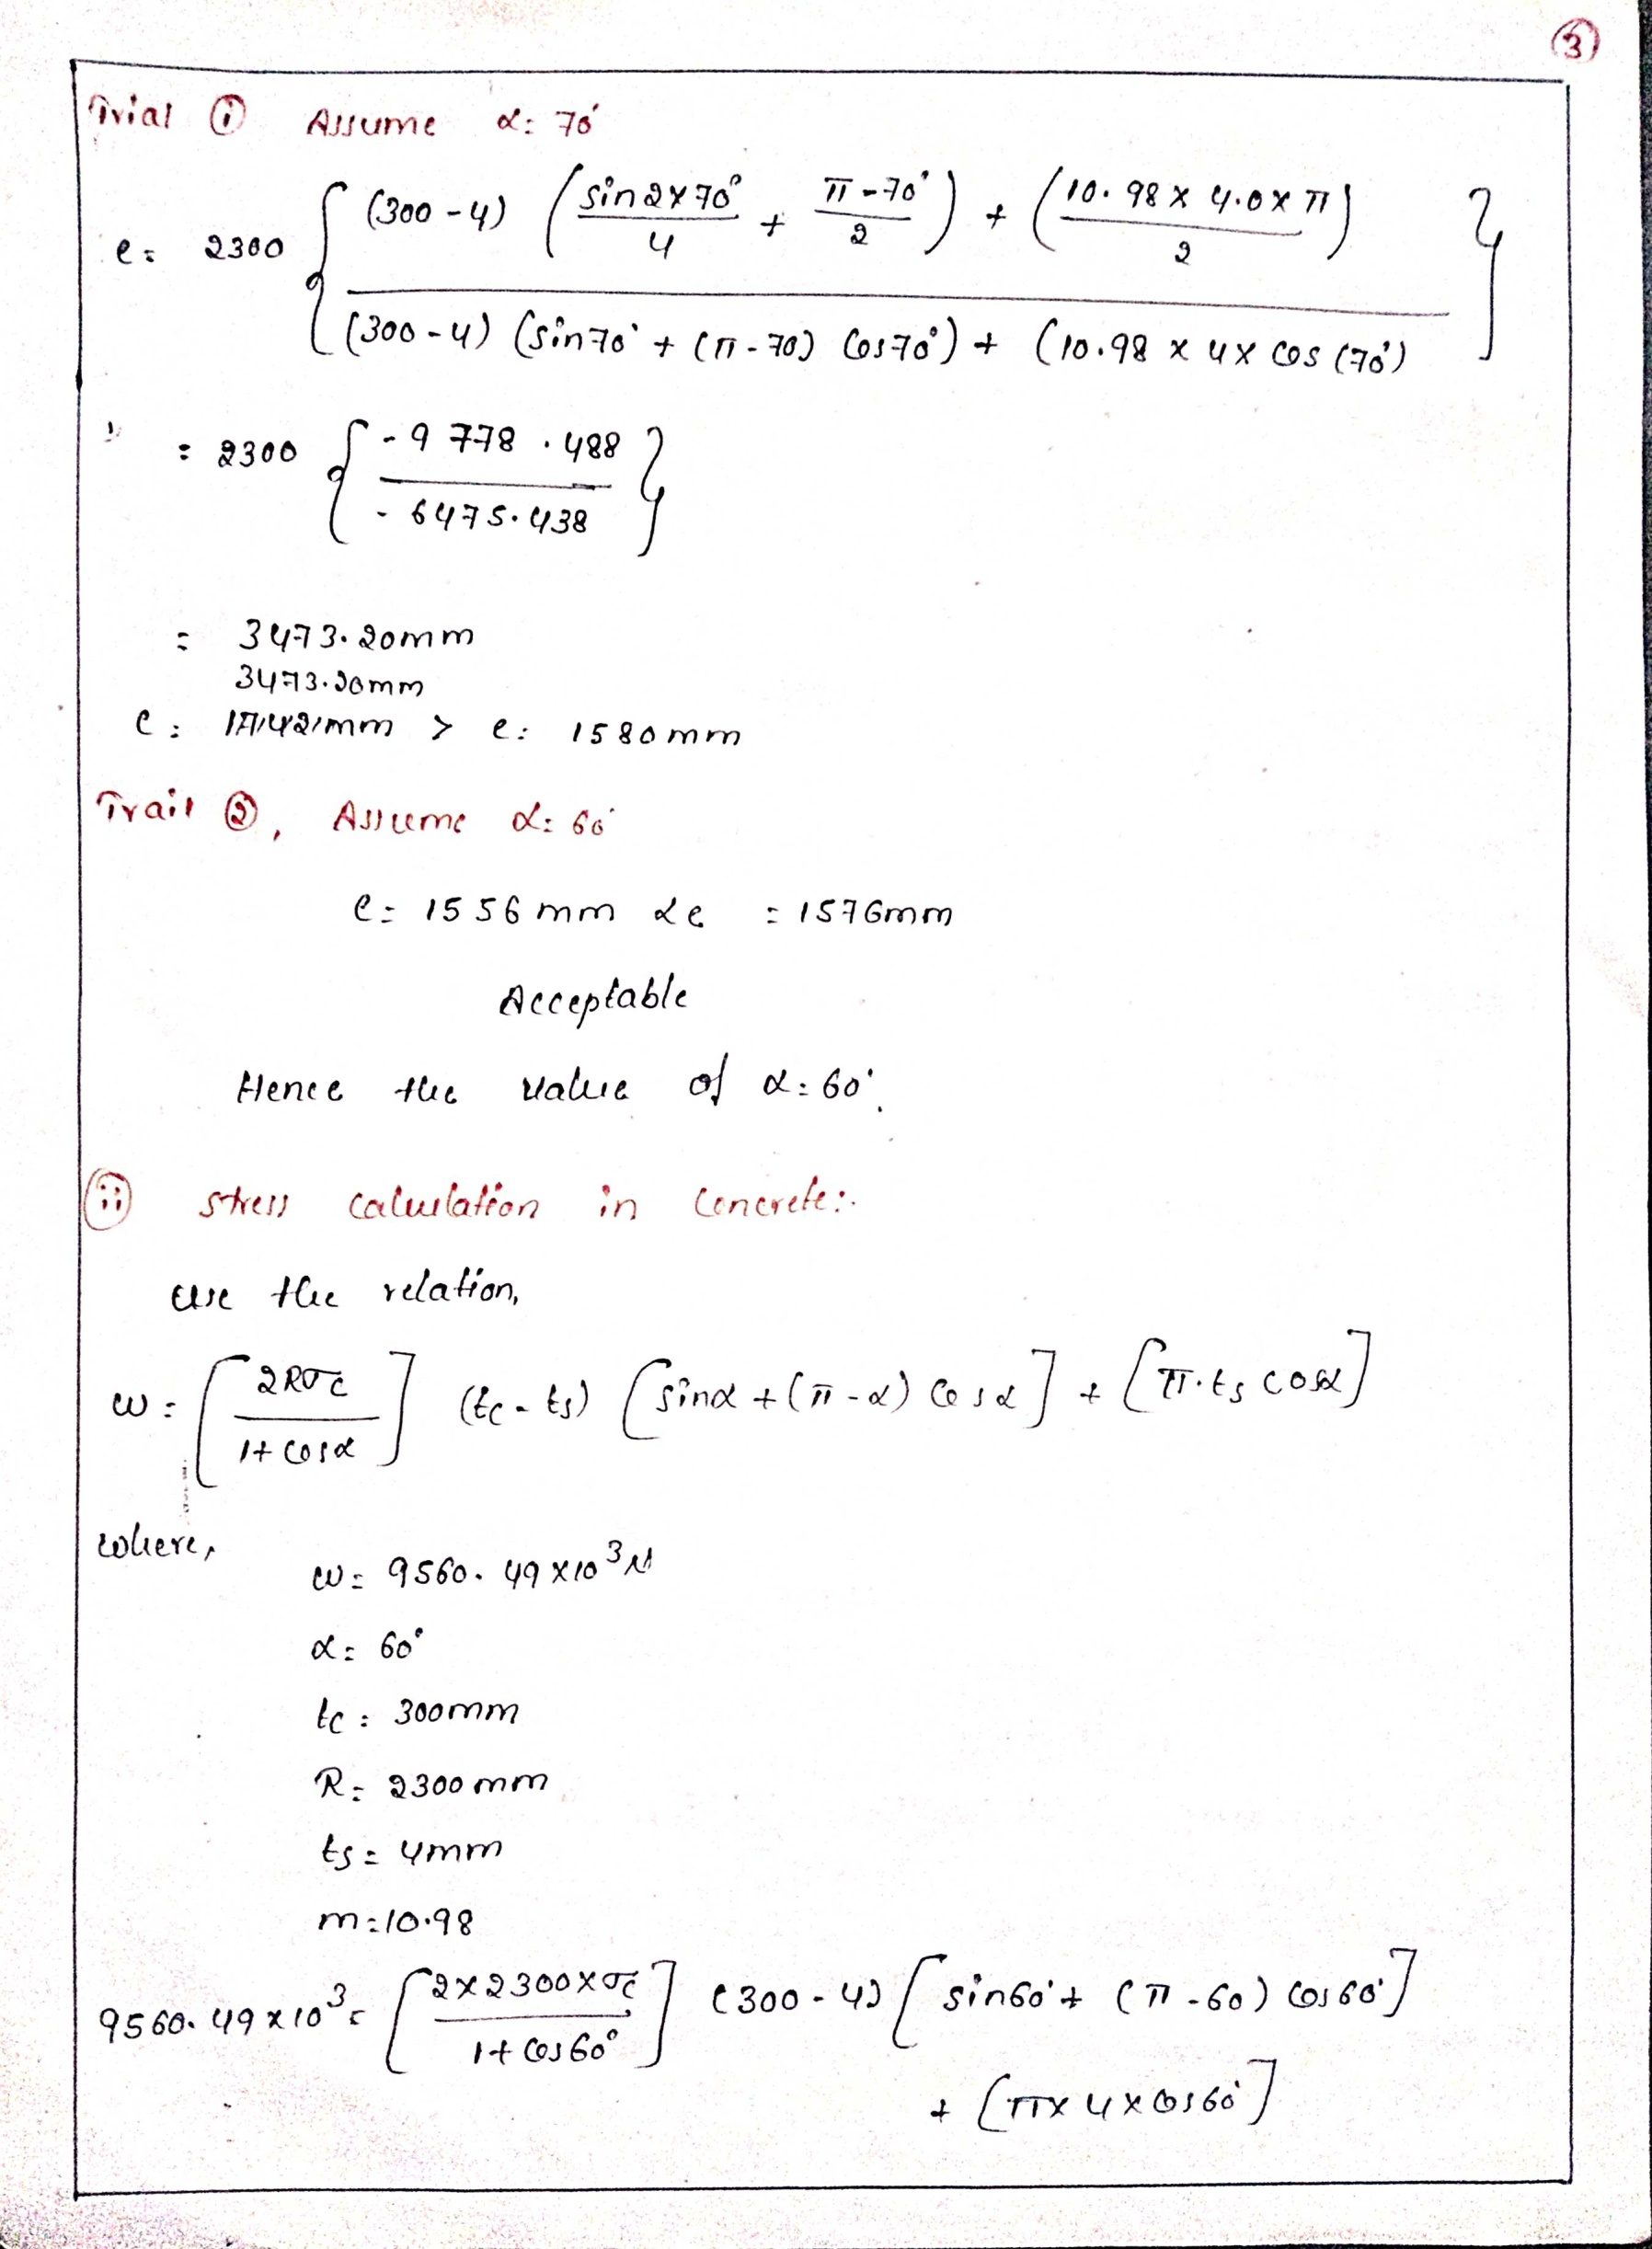 3
Trial ① Assume α: 70°
e = 2300 { (300 - 4) ( sin 2×70° / 4 + π - 70° / 2 ) + ( 10.98 × 4.0 × π / 2 ) / (300 - 4) (sin 70° + (π - 70) cos 70°) + (10.98 × 4 × cos (70°) }
= 2300 { - 9778.488 / - 6475.438 }
= 3473.20mm
3473.20mm
e = > e = 1580mm
Trail ②, Assume α: 60°
e = 1556mm αe = 1576mm
Acceptable
Hence the value of α = 60°.
(ii) stress calculation in concrete:.
use the relation,
w = [ 2Rσc / 1 + cosα ] (tc - ts) [ sinα + (π - α) cosα ] + [ π.ts cosα ]
where,
w = 9560.49 × 10³ N
α = 60°
tc = 300mm
R = 2300mm
ts = 4mm
m = 10.98
9560.49 × 10³ = [ 2 × 2300 × σc / 1 + cos60° ] (300 - 4) [ sin60° + (π - 60) cos60° ]
+ [ π × 4 × cos60° ]